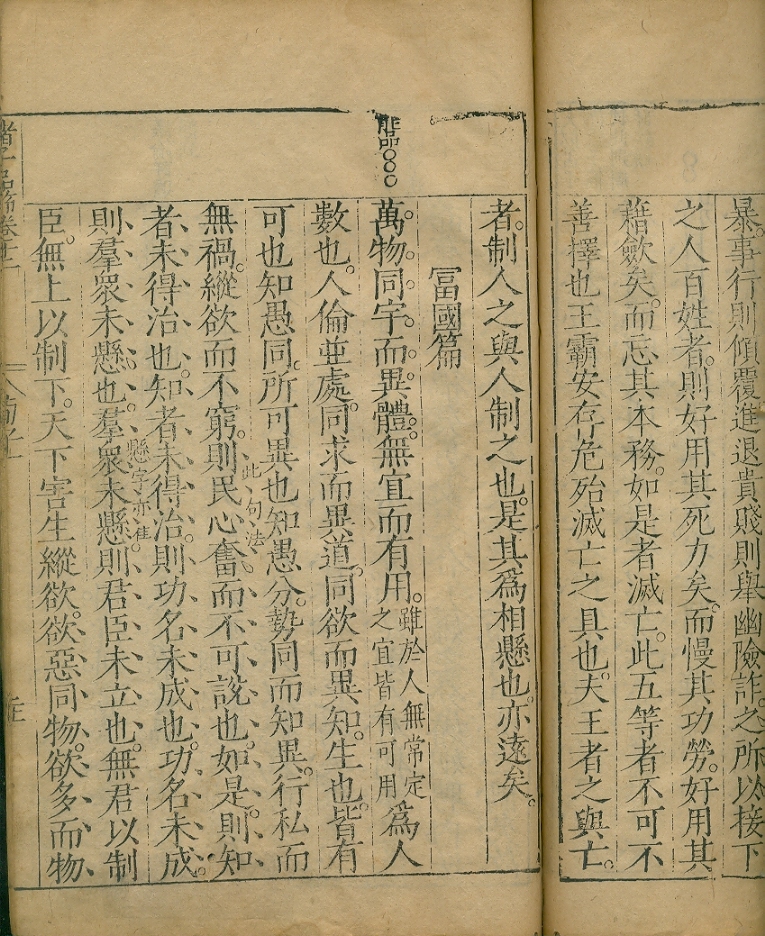 暴。事行則傾覆進退貴賤則舉幽險詐。之所以接下
之人百姓者。則好用其死力矣。而慢其功勞。好用其
藉斂矣。而忘其本務。如是者滅亡。此五等者不可不
善擇也王霸安存危殆滅亡之具也。夫王者之與亡。
者。制人之與人制之也。是其為相懸也。亦遠矣。
富國篇
萬物。同。宇。而。異。體。無宜而有用。雖於人無常定之宜皆有可用為人
數也。人倫並處。同求而異道。同欲而異知。生也。皆有
可也知愚同。所可異也知愚分。勢同而知異。行私而
無禍。縱欲而不窮。則民心奮。而不可說也。如是。則知
此句法
者、未、得、治、也。知、者、未、得、治。則、功、名、未、成、也。功、名、未、成。
則、羣、衆、未、懸、也。羣、衆、未、懸。則、君、臣、未、立、也。無君以制
懸字亦佳
臣。無上以制下。天下害生縱欲。欲惡同物。欲多而物